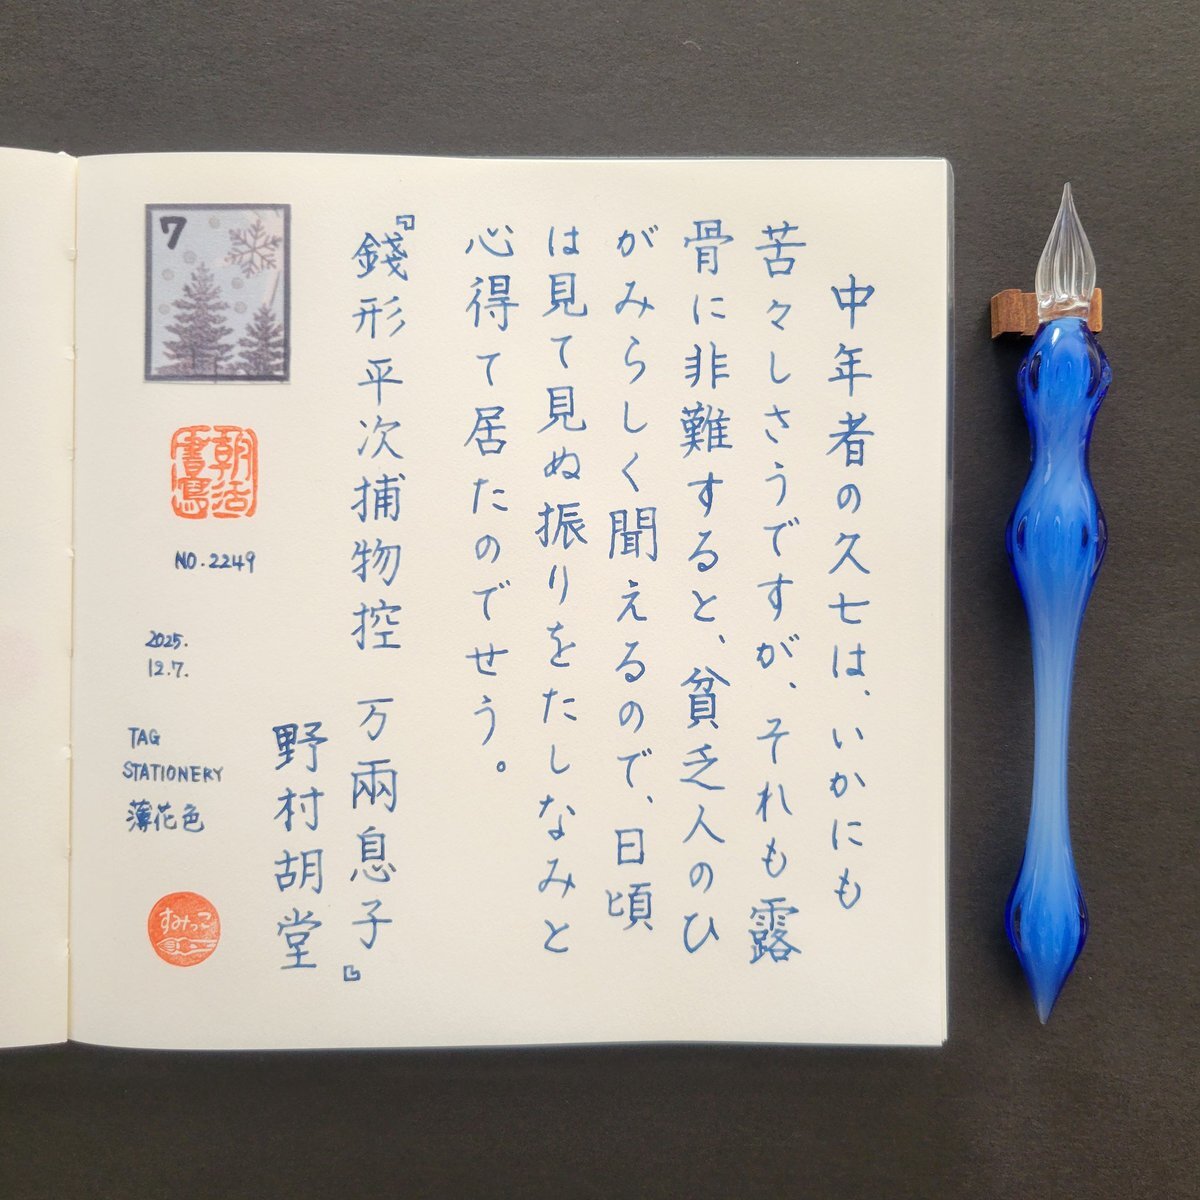 中年者の久七は、いかにも
苦々しさうですが、それも露
骨に非難すると、貧乏人のひ
がみらしく聞えるので、日頃
は見て見ぬ振りをたしなみと
心得て居たのでせう。
『錢形平次捕物控 万兩息子』
野村胡堂
7
朝活
書寫
NO.2249
2025.
12.7.
TAG
STATIONERY
薄花色
すみっこ